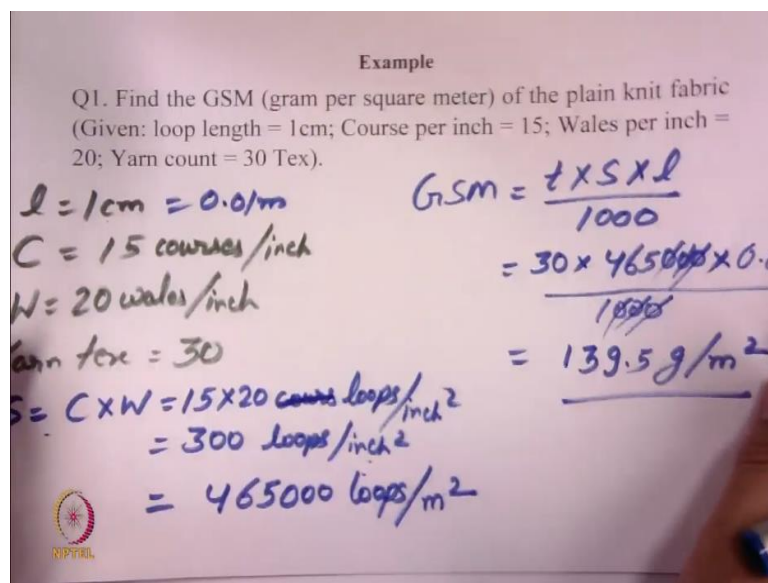 Example
Q1. Find the GSM (gram per square meter) of the plain knit fabric
(Given: loop length = 1cm; Course per inch = 15; Wales per inch =
20; Yarn count = 30 Tex).
l = 1cm = 0.01m
C = 15 courses/inch
W = 20 wales/inch
Yarn tex = 30
S = C × W = 15×20 loops/inch²
= 300 loops/inch²
= 465000 loops/m²
GSM = t × S × l
1000
= 30 × 465000 × 0.
1000
= 139.5 g/m²
NPTEL